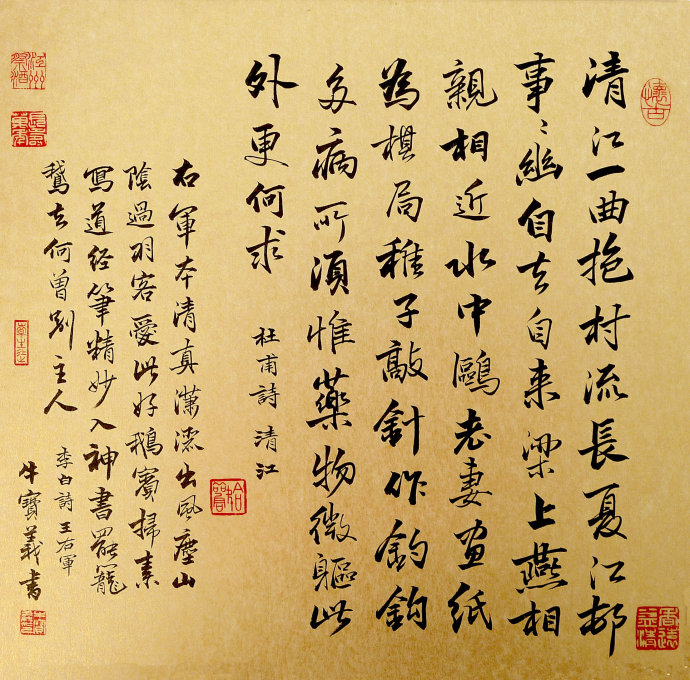 懷古
清江一曲抱村流長夏江邨
事〻幽自去自来梁上燕相
親相近水中鷗老妻画紙
為棋局稚子敲針作釣鈎
多病所須惟藥物微軀此
外更何求
杜甫詩清江
右軍本清真瀟灑出風塵山
陰過羽客愛此好鵝賓掃素
寫道经筆精妙入神書罷籠
鵝去何曾別主人
李白詩王右軍
牛寶義書
香遠益清
江州祭酒